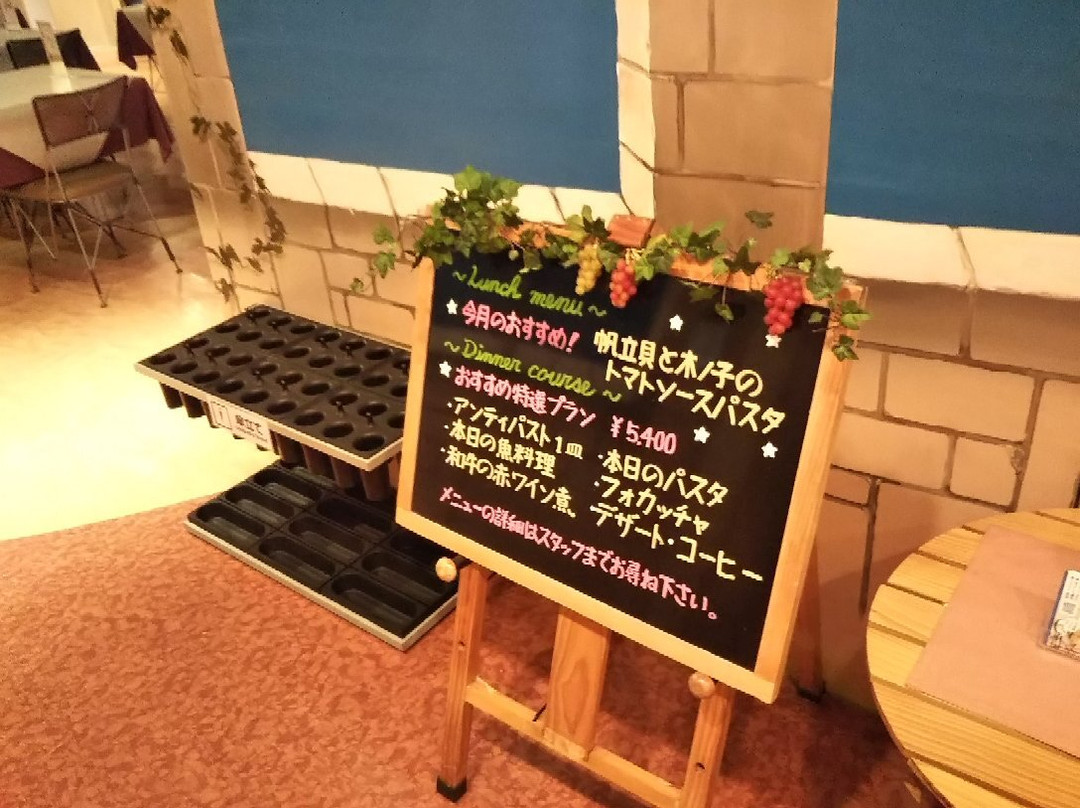 ~Lunch menu~
今月のおすすめ!
帆立貝と木ノ子の
トマトソースパスタ
~Dinner course~
おすすめ特選プラン ¥5,400
・アンティパスト1皿
・本日の魚料理
・和牛の赤ワイン煮、
・本日のパスタ
・フォカッチャ
デザート・コーヒー
メニューの詳細はスタッフまでお尋ね下さい。
傘立て